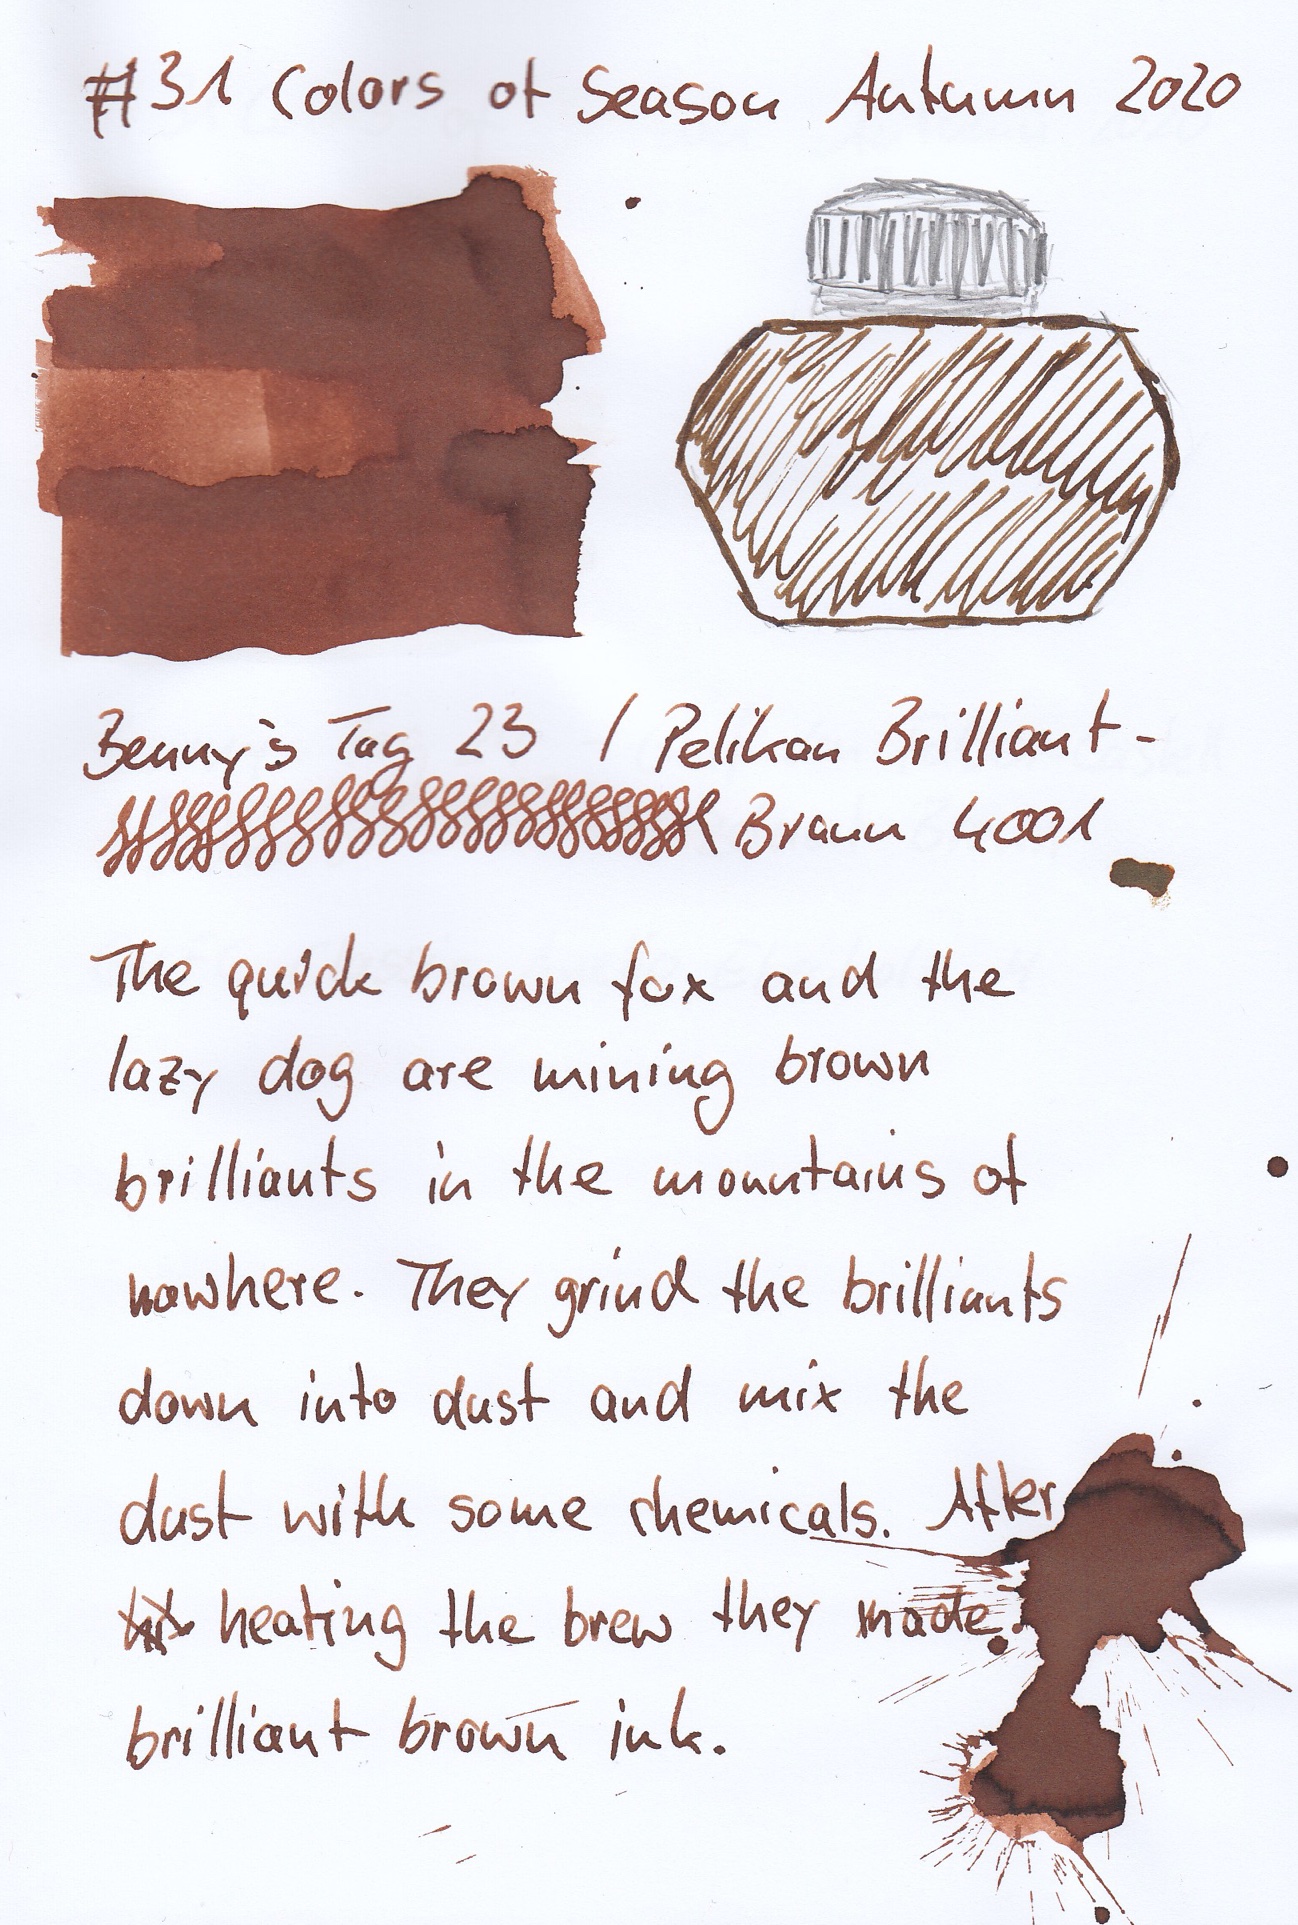 #31 Colors of Season Autumn 2020
Benny's Tag 23 / Pelikan Brilliant-
Braun 4001
The quick brown fox and the
lazy dog are mining brown
brilliants in the mountains of
nowhere. They grind the brilliants
down into dust and mix the
dust with some chemicals. After
heating the brew they made
brilliant brown ink.